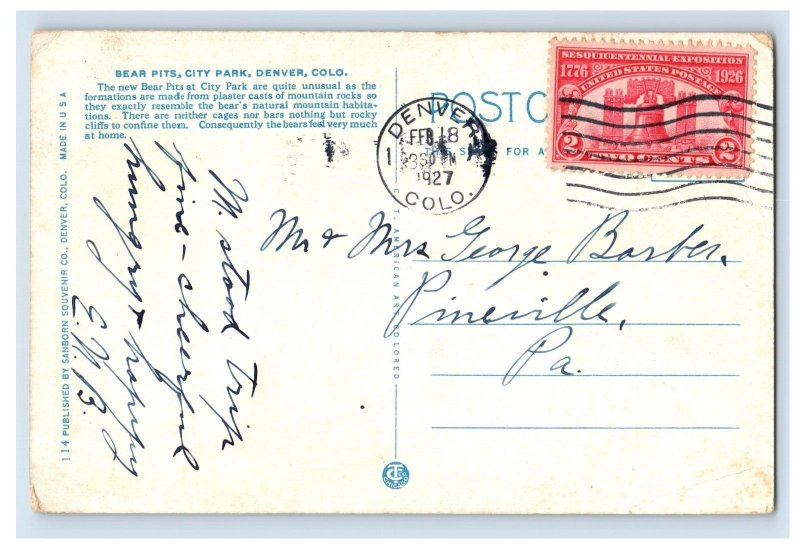 BEAR PITS, CITY PARK, DENVER, COLO.
The new Bear Pits at City Park are quite unusual as the
formations are made from plaster casts of mountain rocks so
they exactly resemble the bear's natural mountain habita-
tions. There are neither cages nor bars nothing but rocky
cliffs to confine them. Consequently the bears feel very much
at home.
M. stood trip
fine - cheerful
hungry & happy
E.W.B.
114 PUBLISHED BY SANBORN SOUVENIR CO., DENVER, COLO. MADE IN U S A
C.T. AMERICAN ART COLORED
POST C
FOR A
DENVER
FEB 18
30 PM
1927
COLO.
1
SESQUICENTENNIAL EXPOSITION
1776 UNITED STATES POSTAGE 1926
2 TWO CENTS 2
Mr & Mrs George Barber,
Pineville,
Pa.
CHICAGO